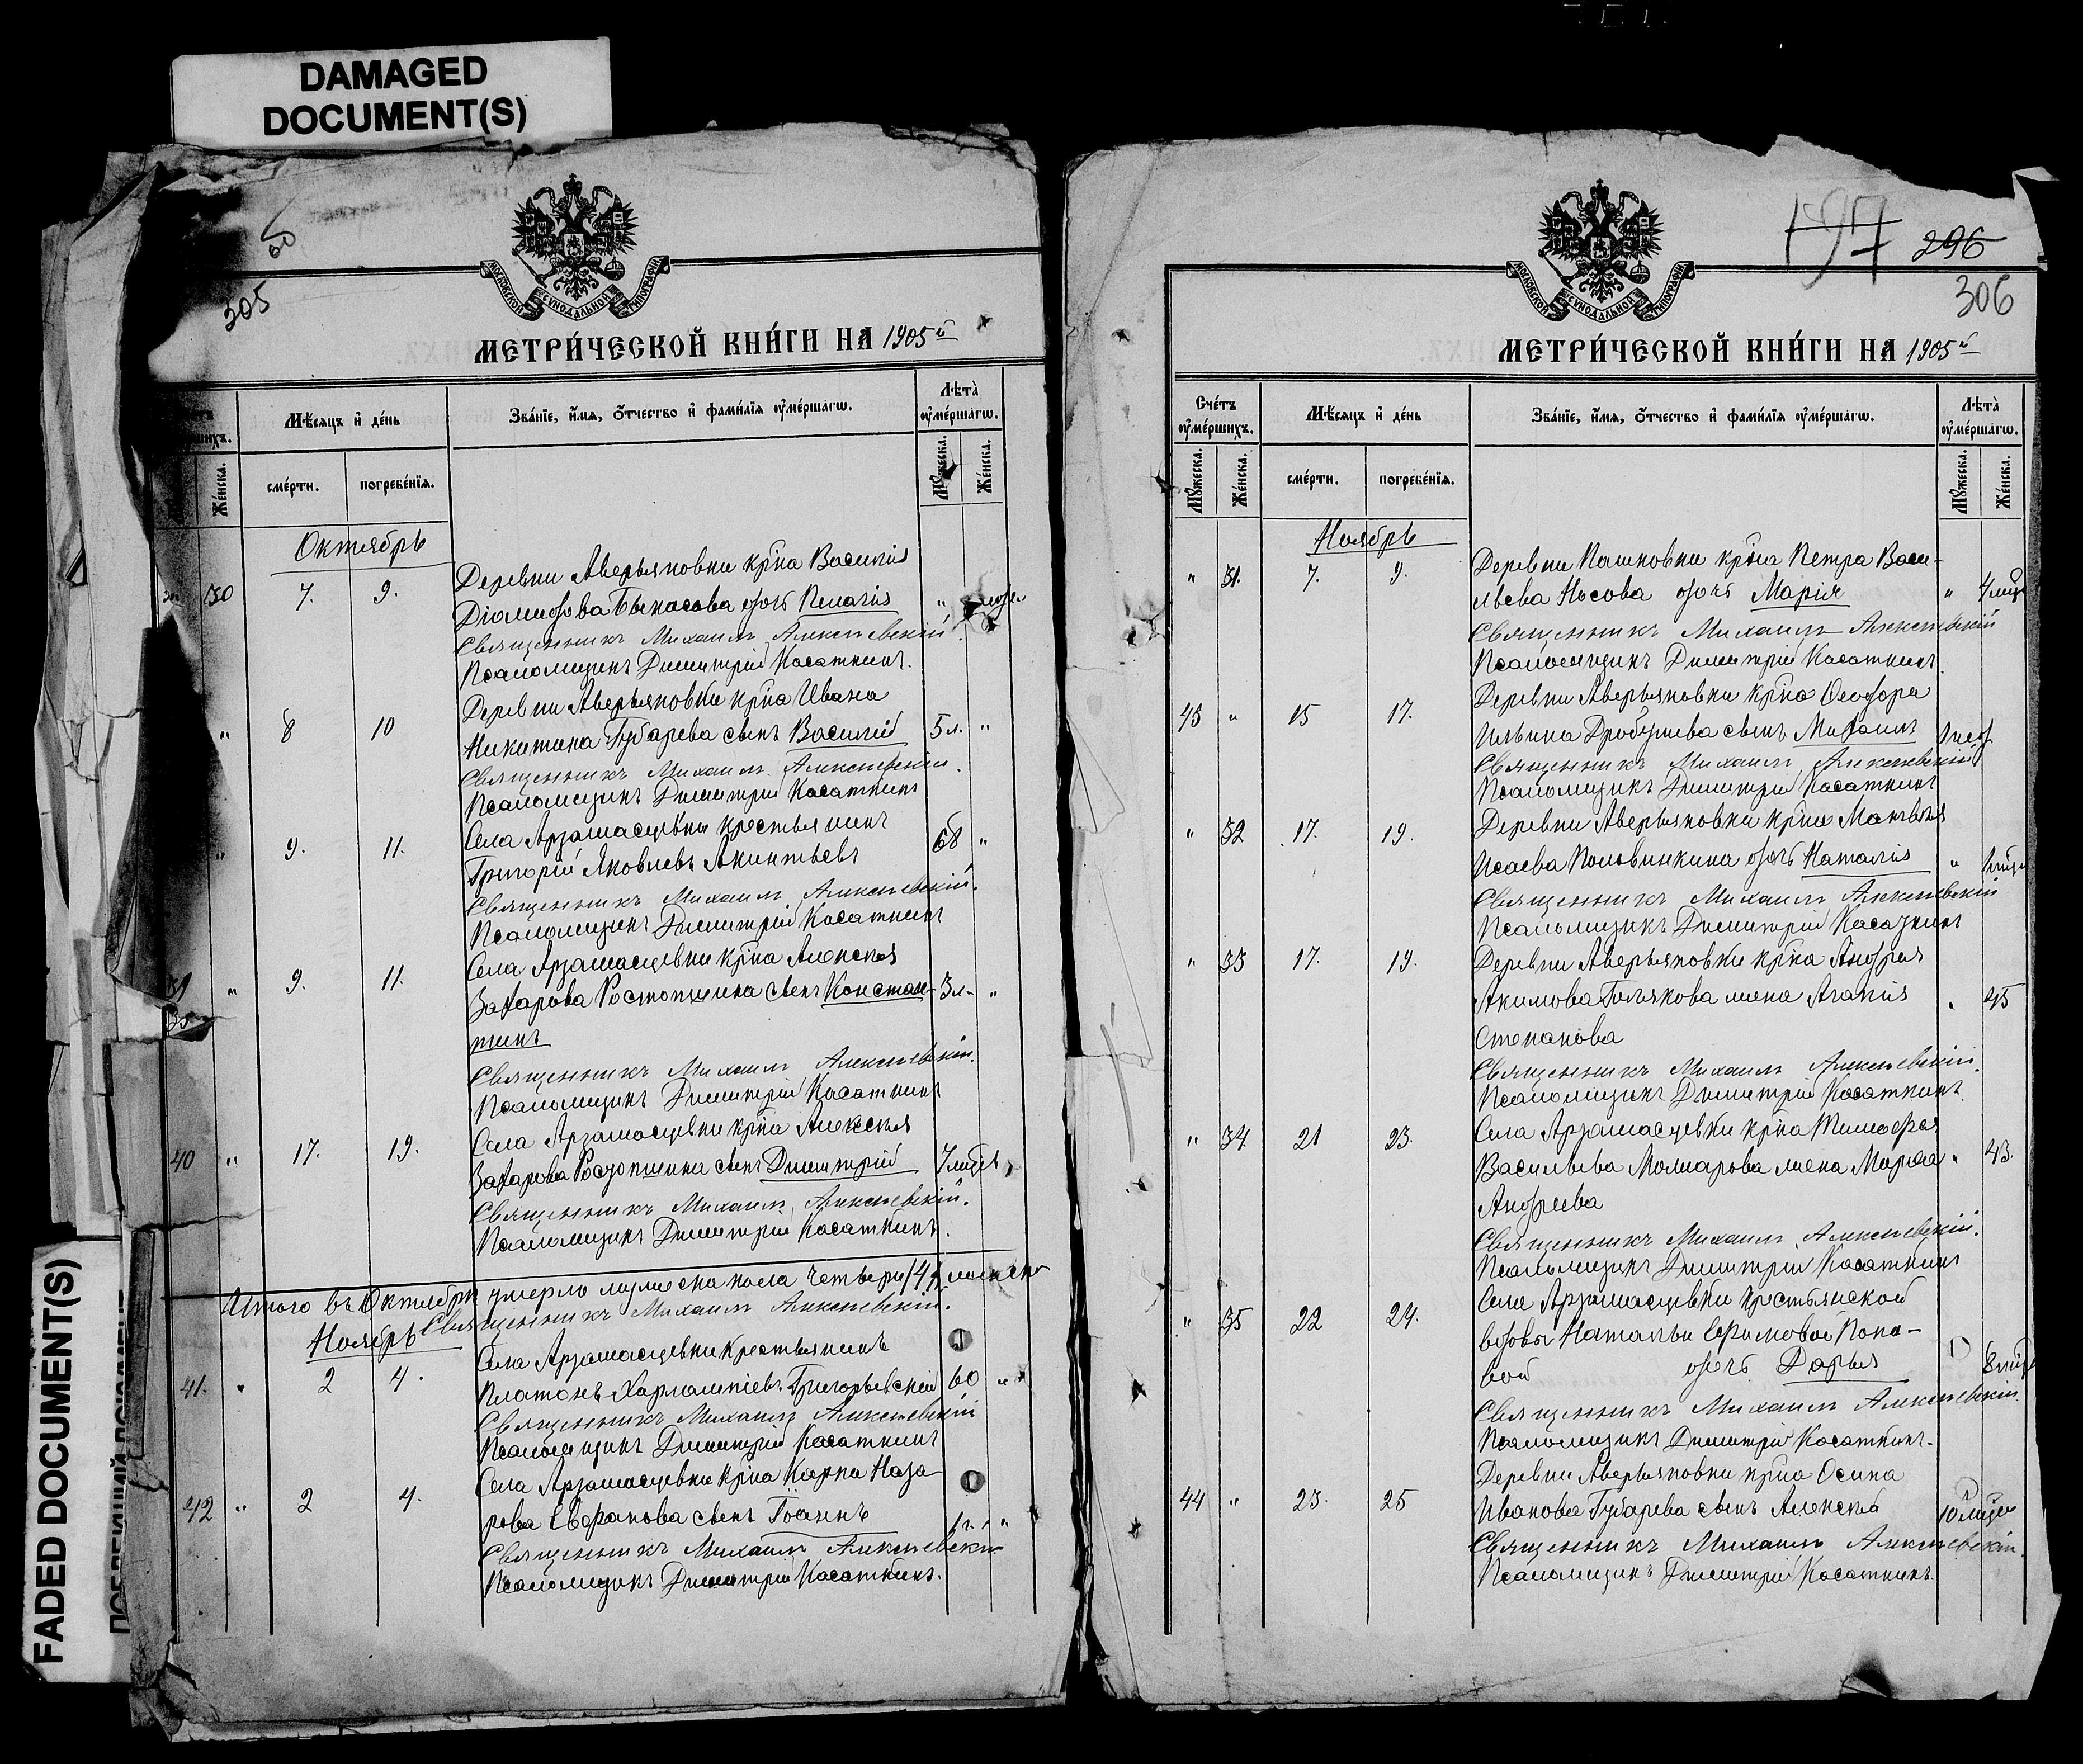 DAMAGED
DOCUMENT(S)
305
МОСКОВСКОЙ СѴНОДАЛЬНОЙ ТИПОГРАФІИ
МЕТРИ́ЧЕСКОЙ КНИ́ГИ НА 1905й
Мѣсяцъ и҆ де́нь
Зва́нїе, и҆́мя, ѻ҆́тчество и҆ фами́лїя ѹ҆ме́ршагѡ.
Лѣта̀
ѹ҆ме́ршагѡ.
Же́нска.
сме́рти.
погребе́нїя.
Мꙋ́жеска.
Же́нска.
Октябрь
30 7. 9. Деревни Аверьяновки кр҃на Василія
Діомидова Быкасова дочь Пелагія "
Священникъ Михаилъ Алексѣевскій.
Псаломщикъ Димитрій Касаткинъ.
Деревни Аверьяновки кр҃на Ивана
" 8 10 Никитина Губарева сынъ Василій 5 л. "
Священникъ Михаилъ Алексѣевскій.
Псаломщикъ Димитрій Касаткинъ
Села Арзамасцевки крестьянинъ
" 9. 11. Григорій Яковлевъ Акинтьевъ 68 "
Священникъ Михаилъ Алексѣевскій.
Псаломщикъ Димитрій Касаткинъ
Села Арзамасцевки кр҃на Алексѣя
39 " 9. 11. Захарова Ростопшина сынъ Констан- 3 л. "
тинъ
Священникъ Михаилъ Алексѣевскій.
Псаломщикъ Димитрій Касаткинъ
Села Арзамасцевки кр҃на Алексѣя
40 " 17. 19. Захарова Ростопшина сынъ Димитрій 7 мцѣв
Священникъ Михаилъ Алексѣевскій.
Псаломщикъ Димитрій Касаткинъ.
Итого въ Октябрѣ умерло мужеска пола четыре /4/ женска
Священникъ Михаилъ Алексѣевскій.
Ноябрь
Села Арзамасцевки крестьянинъ
41. " 2 4. Платонъ Харлампіевъ Григорьевскій 60 "
Священникъ Михаилъ Алексѣевскій
Псаломщикъ Димитрій Касаткинъ
Села Арзамасцевки кр҃на Карпа Наза-
42 " 2 4. рова Евдрапова сынъ Іоаннъ 1 г. "
Священникъ Михаилъ Алексѣевскій
Псаломщикъ Димитрій Касаткинъ.
FADED DOCUMENT(S)
197 296
306
МОСКОВСКОЙ СѴНОДАЛЬНОЙ ТИПОГРАФІИ
МЕТРИ́ЧЕСКОЙ КНИ́ГИ НА 1905й
Сче́тъ
ѹ҆ме́ршихъ.
Мѣсяцъ и҆ де́нь
Зва́нїе, и҆́мя, ѻ҆́тчество и҆ фами́лїя ѹ҆ме́ршагѡ.
Лѣта̀
ѹ҆ме́ршагѡ.
Мꙋ́жеска.
Же́нска.
сме́рти.
погребе́нїя.
Мꙋ́жеска.
Же́нска.
Ноябрь
Деревни Пашковки кр҃на Петра Васи-
" 31. 7. 9. льева Носова дочь Марія " 4 мцв
Священникъ Михаилъ Алексѣевскій
Псаломщикъ Димитрій Касаткинъ
Деревни Аверьяновки кр҃на Ѳеодора
43 " 15 17. Ильина Дробушева сынъ Михаилъ
Священникъ Михаилъ Алексѣевскій
Псаломщикъ Димитрій Касаткинъ
Деревни Аверьяновки кр҃на Матвѣя
" 32 17. 19. Исаева Половинкина дочь Наталія "
Священникъ Михаилъ Алексѣевскій
Псаломщикъ Димитрій Касаткинъ
" 33 17. 19. Деревни Аверьяновки кр҃на Андрея
Акимова Голякова жена Агапія " 45
Степанова
Священникъ Михаилъ Алексѣевскій.
Псаломщикъ Димитрій Касаткинъ.
" 34 21 23. Села Арзамасцевки кр҃на Тимофея
Васильева Малиарова жена Марѳа " 43.
Андреева
Священникъ Михаилъ Алексѣевскій.
Псаломщикъ Димитрій Касаткинъ
Села Арзамасцевки крестьянской
" 35 22 24. вдовы Натальи Ефимовой Попо-
вой дочь Дарья 8 мцв
Священникъ Михаилъ Алексѣевскій.
Псаломщикъ Димитрій Касаткинъ.
Деревни Аверьяновки кр҃на Осипа
44 " 23. 25 Иванова Губарева сынъ Алексѣй 10 мцев
Священникъ Михаилъ Алексѣевскій.
Псаломщикъ Димитрій Касаткинъ.